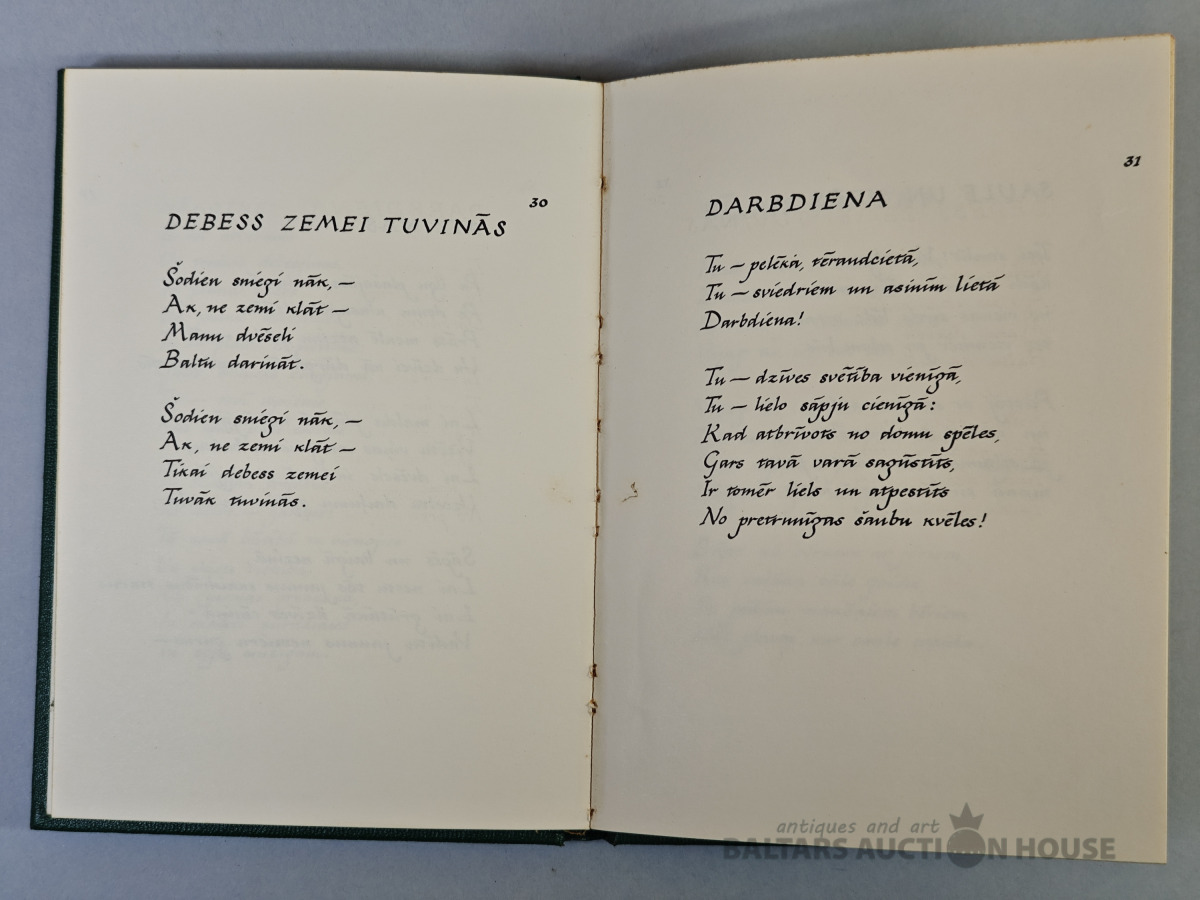 30
DEBESS ZEMEI TUVINĀS
Šodien sniegi nāk, —
Ak, ne zemi klāt —
Manu dvēseli
Baltu darināt.
Šodien sniegi nāk, —
Ak, ne zemi klāt —
Tikai debess zemei
Tuvāk tuvinās.
31
DARBDIENA
Tu — pelēkā, tēraudcietā,
Tu — sviedriem un asinīm lietā
Darbdiena!
Tu — dzīves svētība vienīgā,
Tu — lielo sāpju cienīgā:
Kad atbrīvots no domu spēles,
Gars tavā varā sagūstīts,
Ir tomēr liels un atpestīts
No pretrunīgas šaubu kvēles!
antiques and art
BALTARS AUCTION HOUSE